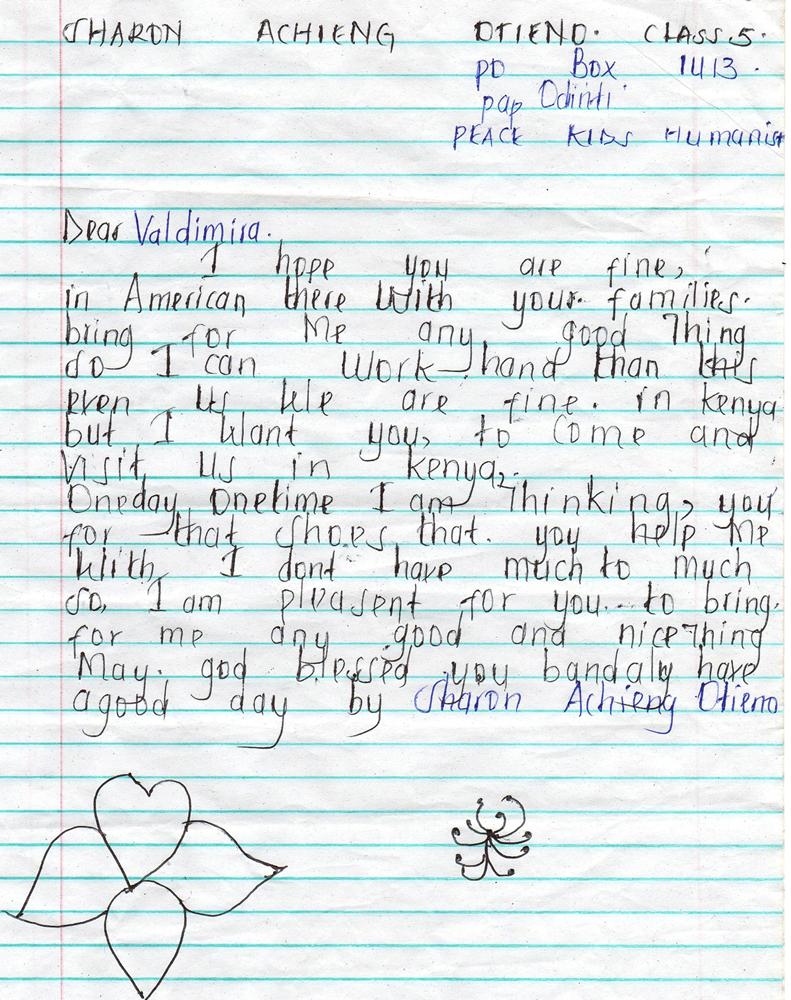 SHARON ACHIENG OTIENO. CLASS.5.
PO Box 1413.
pap Odinti
PEACE KIDS Humanist
Dear Valdimira.
I hope you are fine,
in American there with your families.
bring for Me any good Thing
so I can work hand than this
even us We are fine. in kenya
but I want you, to Come and
visit us in kenya,.
Oneday onetime I am Thinking, you
for that shoes that. you help Me
With, I dont have much to much
so, I am pleasent for you.. to bring.
for me any good and nice Thing
May. god blessed you bandaly have
agood day by Sharon Achieng Otieno